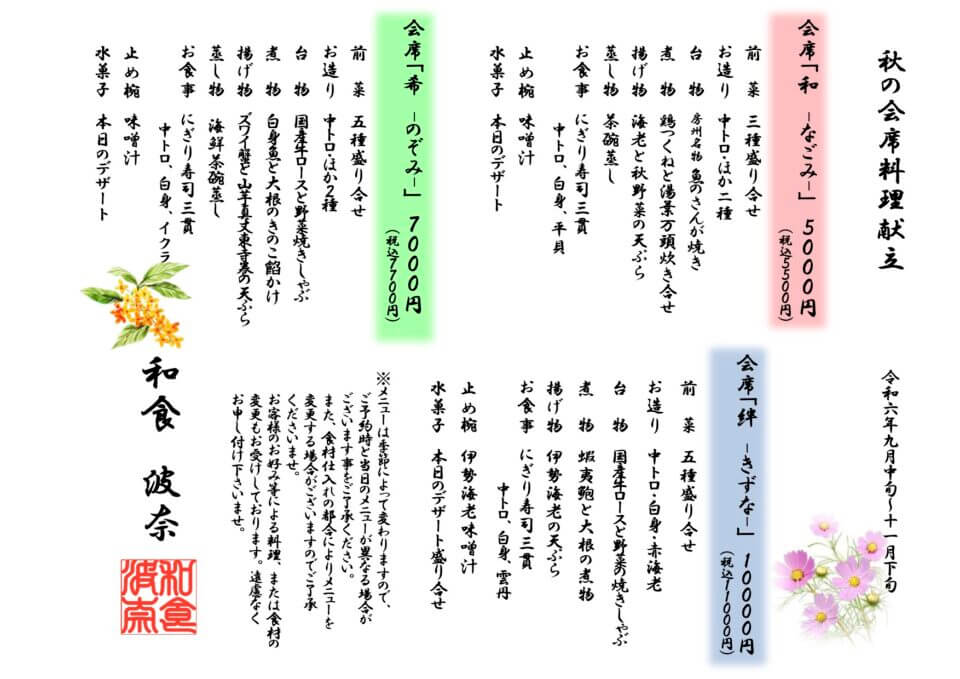 秋の会席料理献立
令和六年九月中旬～十一月下旬
会席「和 －なごみ－」 5000円
(税込5500円)
前菜 三種盛り合せ
お造り 中トロ・ほか二種
台物 房州名物 魚のさんが焼き
煮物 鶏つくねと湯景万頭炊き合せ
揚げ物 海老と秋野菜の天ぷら
蒸し物 茶碗蒸し
お食事 にぎり寿司三貫
中トロ、白身、平貝
止め椀 味噌汁
水菓子 本日のデザート
会席「希 －のぞみ－」 7000円
(税込7700円)
前菜 五種盛り合せ
お造り 中トロ・ほか2種
台物 国産牛ロースと野菜焼きしゃぶ
煮物 白身魚と大根のきのこ餡かけ
揚げ物 ズワイ蟹と山芋真丈東寺巻の天ぷら
蒸し物 海鮮茶碗蒸し
お食事 にぎり寿司三貫
中トロ、白身、イクラ
止め椀 味噌汁
水菓子 本日のデザート
会席「絆 －きずな－」 10000円
(税込11000円)
前菜 五種盛り合せ
お造り 中トロ・白身・赤海老
台物 国産牛ロースと野菜の焼きしゃぶ
煮物 蝦夷鮑と大根の煮物
揚げ物 伊勢海老の天ぷら
お食事 にぎり寿司三貫
中トロ、白身、雲丹
止め椀 伊勢海老味噌汁
水菓子 本日のデザート盛り合せ
※メニューは季節によって変わりますので、
ご予約時と当日のメニューが異なる場合が
ございます事をご了承ください。
また、食材仕入れの都合によりメニューを
変更する場合がございますのでご了承
くださいませ。
お客様のお好み等による料理、または食材の
変更もお受けしております。遠慮なく
お申し付け下さいませ。
和食 波奈
和食
波奈